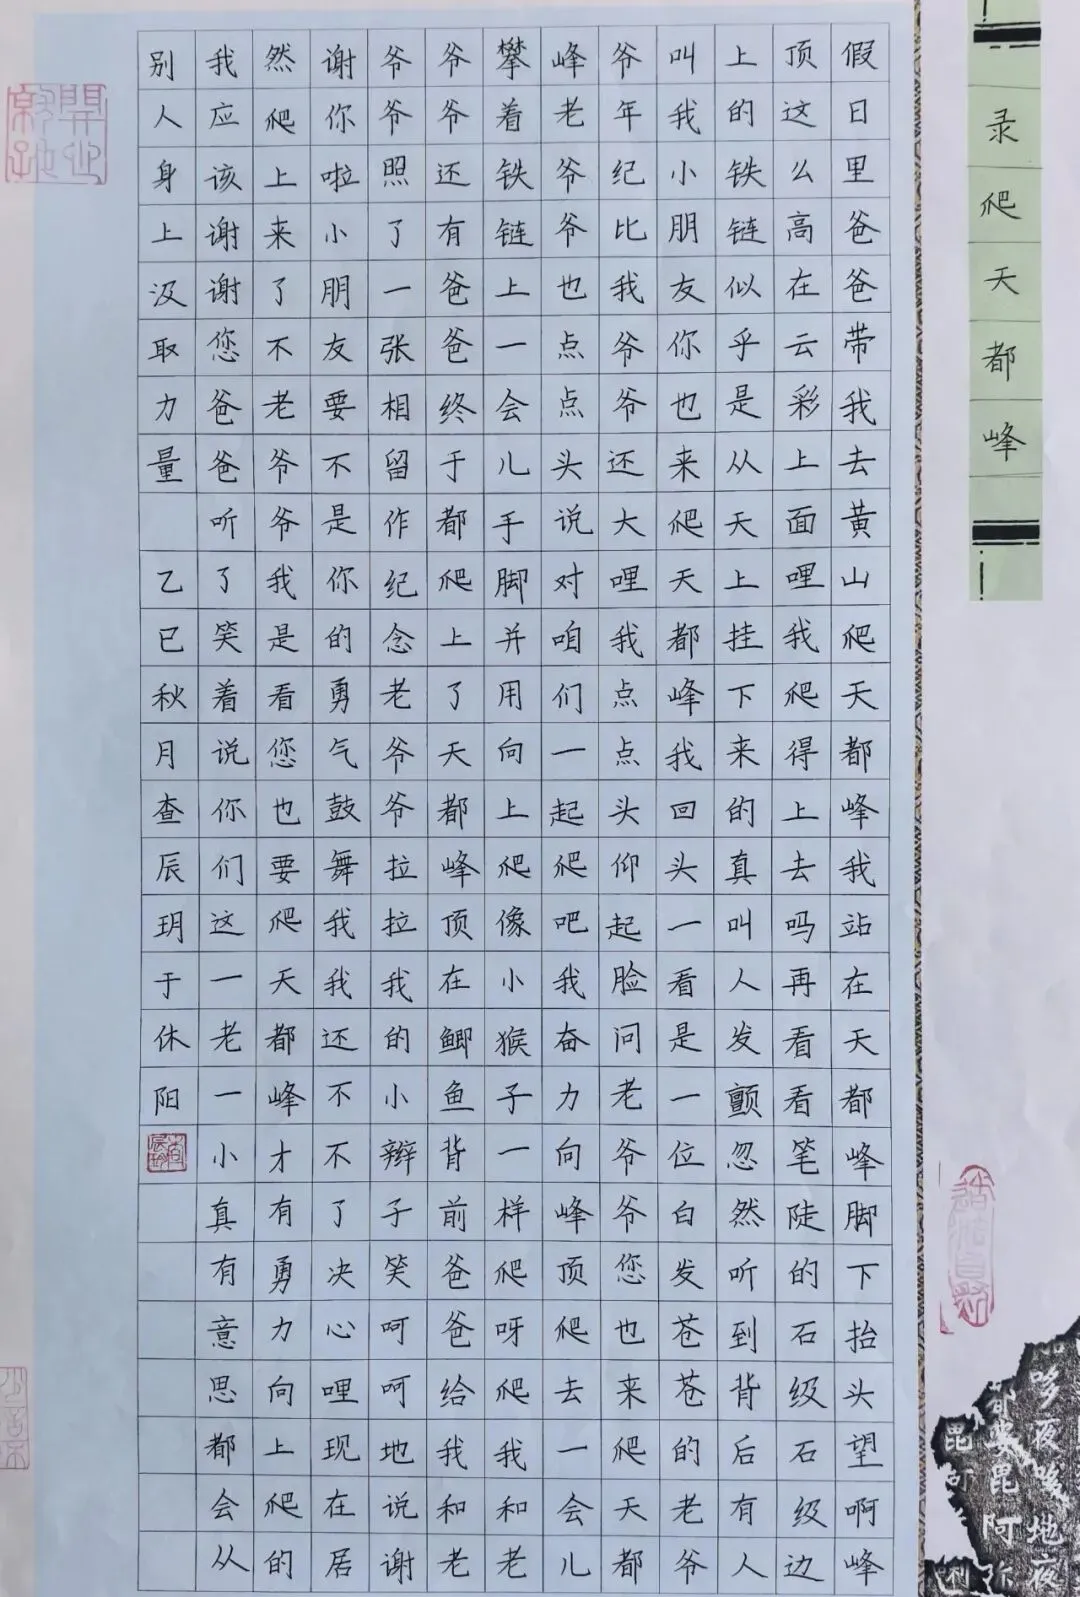 录爬天都峰
假日里爸爸带我去黄山爬天都峰我站在天都峰脚下抬头望啊峰
顶这么高在云彩上面哩我爬得上去吗再看看笔陡的石级石级边
上的铁链似乎是从天上挂下来的真叫人发颤忽然听到背后有人
叫我小朋友你也来爬天都峰我回头一看是一位白发苍苍的老爷
爷年纪比我爷爷还大哩我点点头仰起脸问老爷爷您也来爬天都
峰老爷爷也点点头说对咱们一起爬吧我奋力向峰顶爬去一会儿
攀着铁链上一会儿手脚并用向上爬像小猴子一样爬呀爬我和老
爷爷还有爸爸终于都爬上了天都峰顶在鲫鱼背前爸爸给我和老
爷爷照了一张相留作纪念老爷爷拉拉我的小辫子笑呵呵地说谢
谢你啦小朋友要不是你的勇气鼓舞我我还不不了决心哩现在居
然爬上来了不老爷爷我是看您也要爬天都峰才有勇力向上爬的
我应该谢谢您爸爸听了笑着说你们这一老一小真有意思都会从
别人身上汲取力量 乙巳秋月查辰玥于休阳